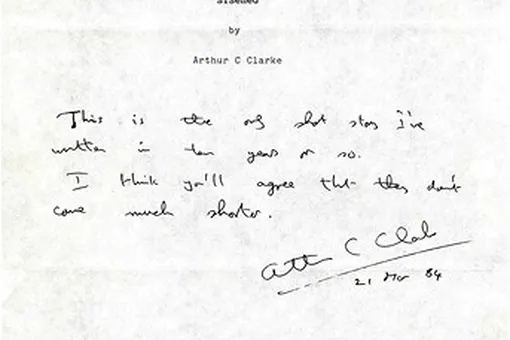 siseneG
by
Arthur C Clarke
This is the only short story I've
written in ten years or so.
I think you'll agree that they don't
come much shorter.
Arthur C Clarke
21 Mar 84